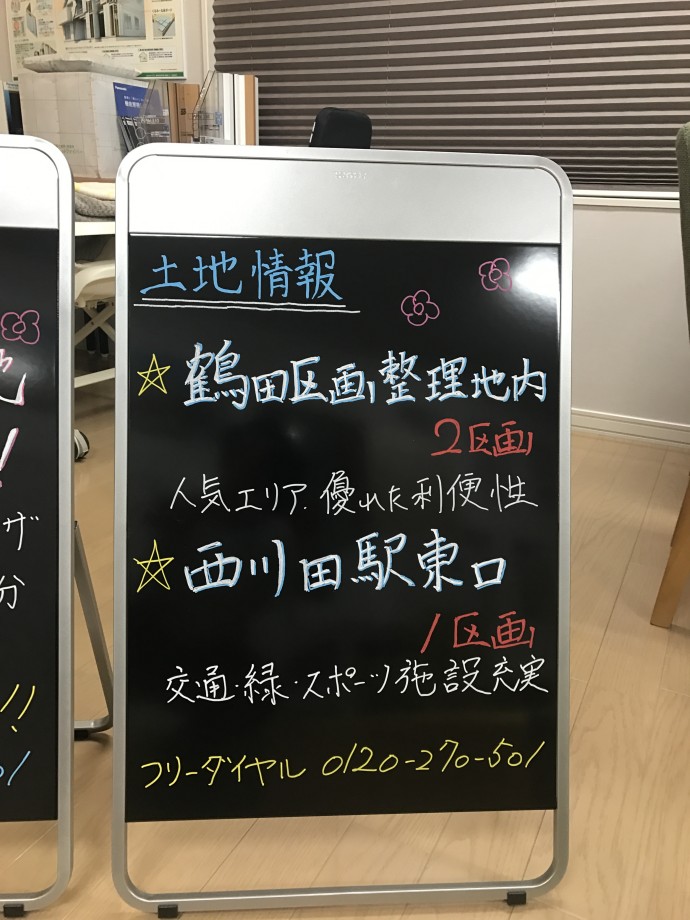 土地情報
☆鶴田区画整理地内
2区画
人気エリア、優れた利便性
☆西川田駅東口
1区画
交通・緑・スポーツ施設充実
フリーダイヤル 0120-270-501
ザ
分
!!
01
Panasonic